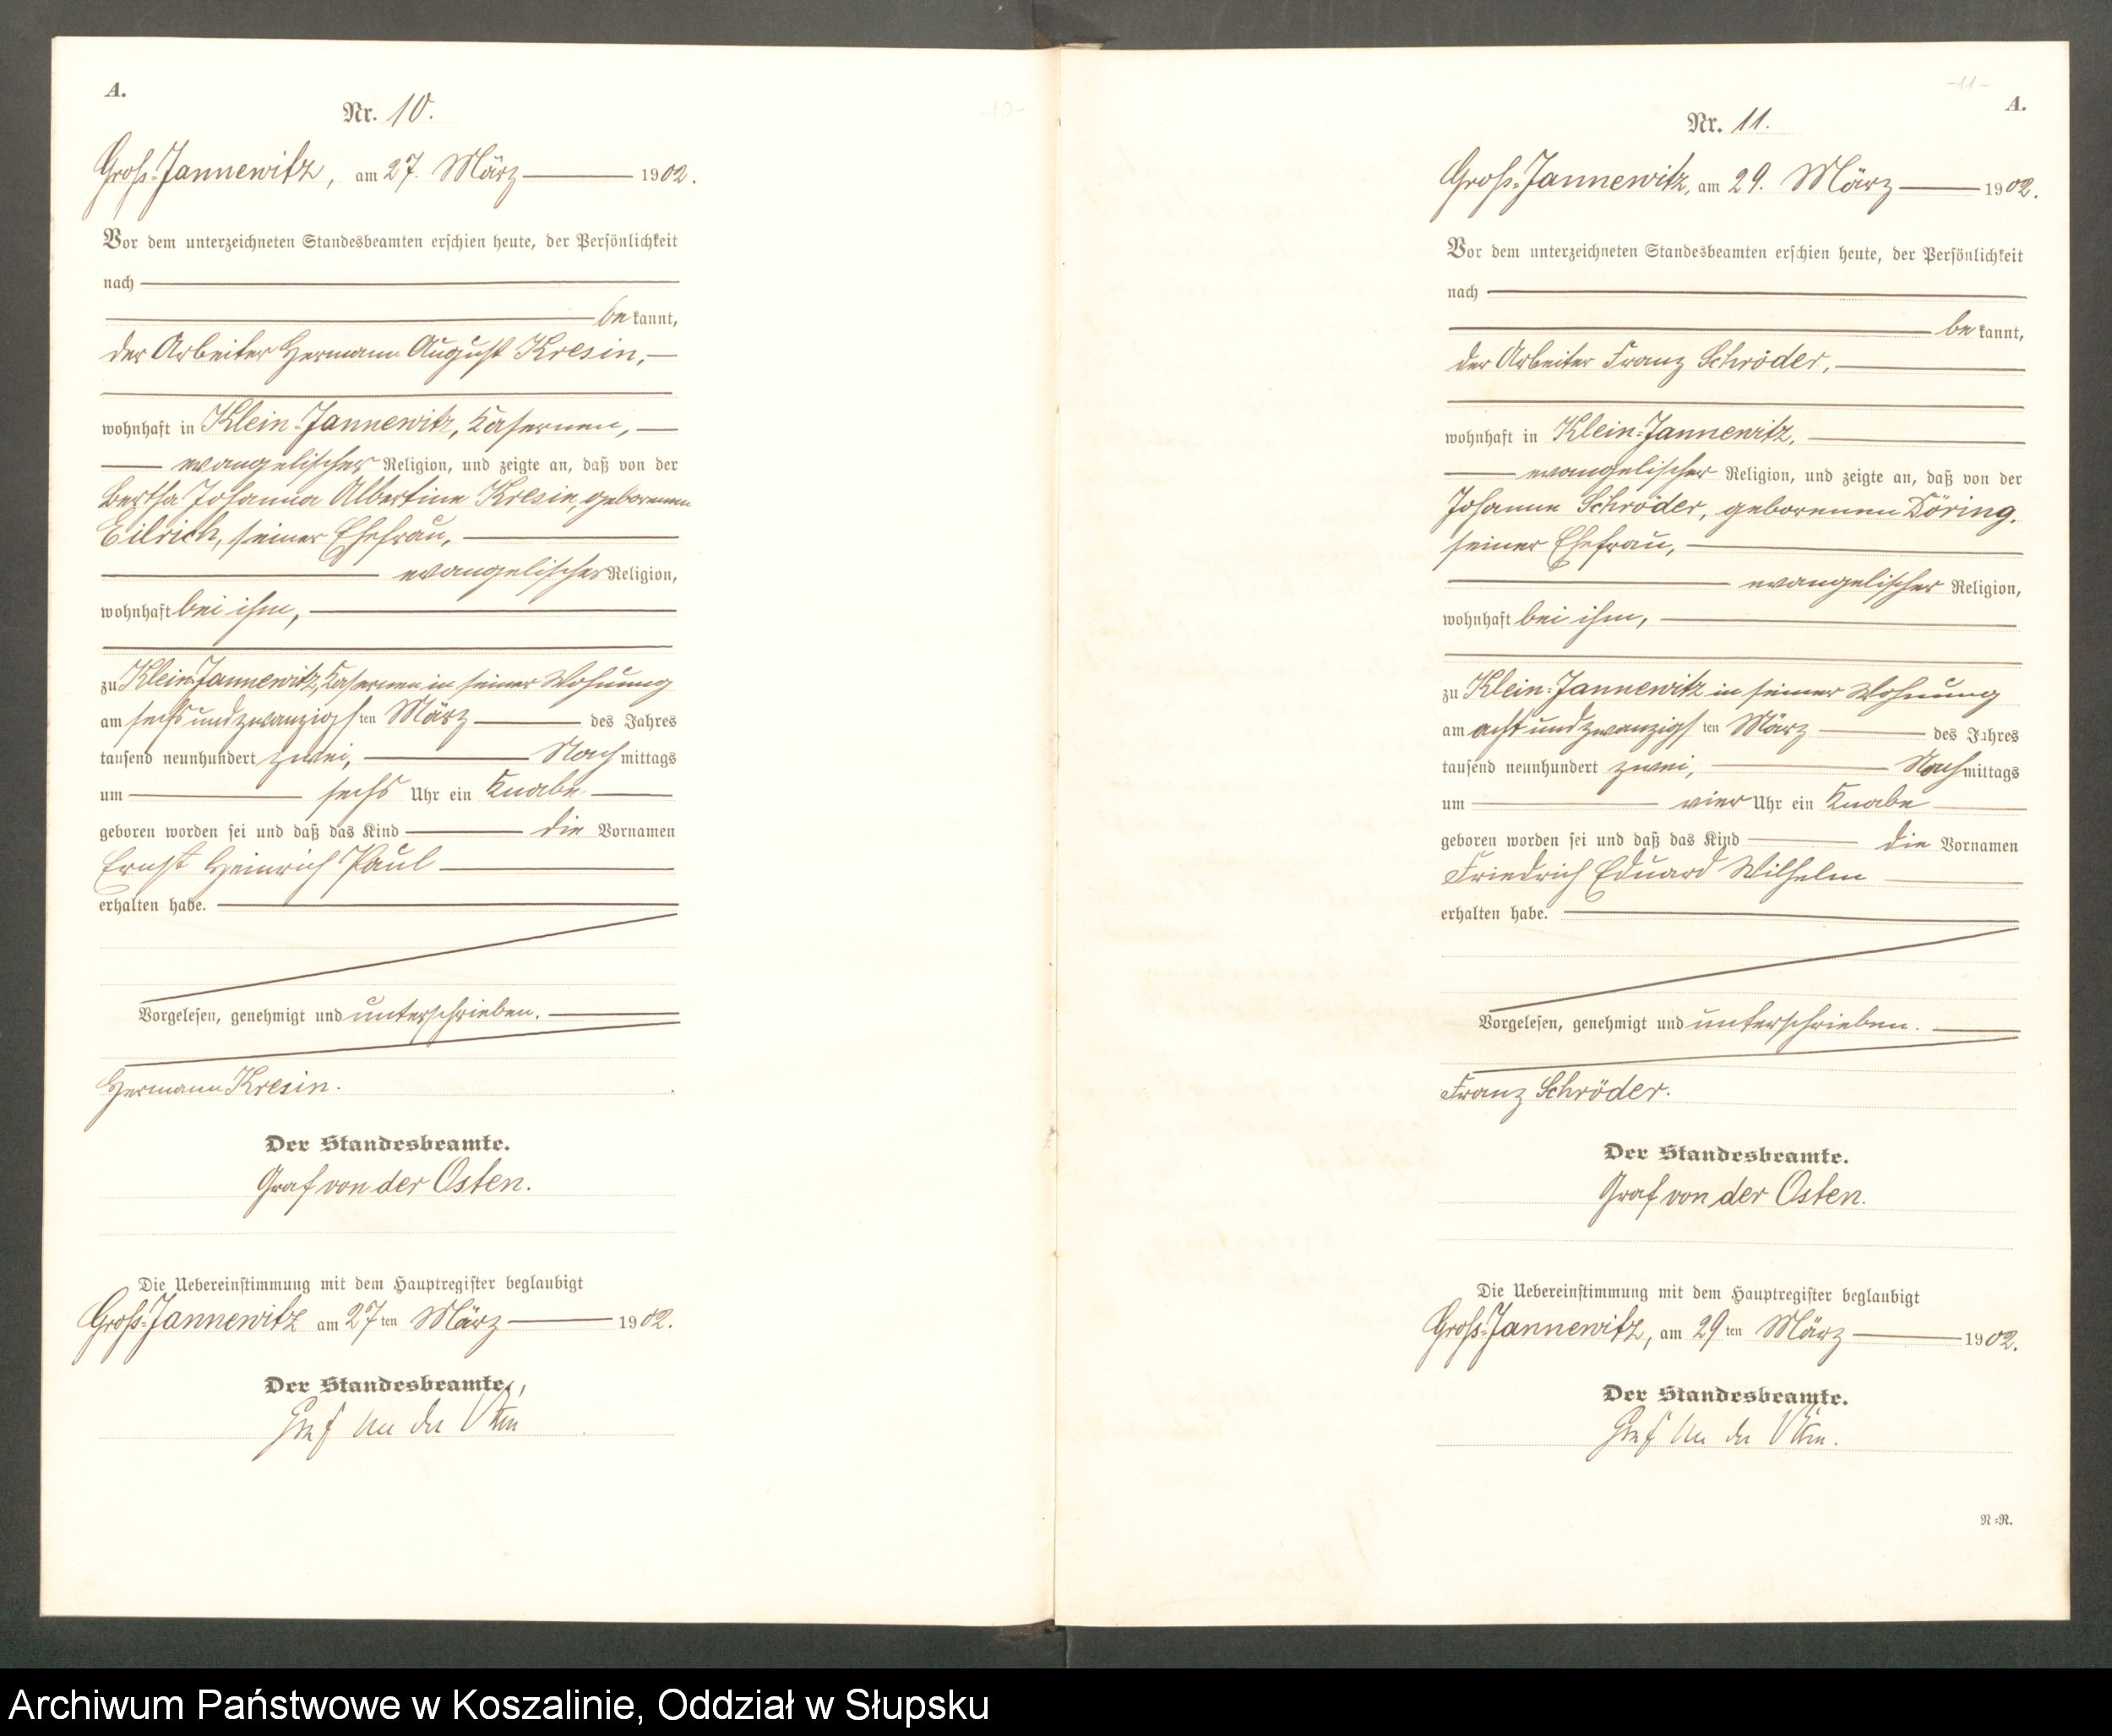 A.
Nr. 10.
Groß-Jannewitz, am 27. März 1902.
Vor dem unterzeichneten Standesbeamten erschien heute, der Persönlichkeit
nach
be kannt,
der Arbeiter Hermann August Kresin,
wohnhaft in Klein-Jannewitz, Kasernen,
evangelischer Religion, und zeigte an, daß von der
Bertha Johanna Albertine Kresin, geborenen
Eilrich, seiner Ehefrau,
evangelischer Religion,
wohnhaft bei ihm,
zu Klein-Jannewitz, Kasernen in seiner Wohnung
am sechsundzwanzigsten März des Jahres
tausend neunhundert zwei, Nachmittags
um sechs Uhr ein Knabe
geboren worden sei und daß das Kind die Vornamen
Ernst Heinrich Paul
erhalten habe.
Vorgelesen, genehmigt und unterschrieben.
Hermann Kresin.
Der Standesbeamte.
Graf von der Osten.
Die Uebereinstimmung mit dem Hauptregister beglaubigt
Groß-Jannewitz am 27ten März 1902.
Der Standesbeamte.
Graf von der Osten
-10-
-11-
A.
Nr. 11.
Groß-Jannewitz, am 29. März 1902.
Vor dem unterzeichneten Standesbeamten erschien heute, der Persönlichkeit
nach
be kannt,
der Arbeiter Franz Schröder,
wohnhaft in Klein-Jannewitz,
evangelischer Religion, und zeigte an, daß von der
Johanne Schröder, geborenen Döring,
seiner Ehefrau,
evangelischer Religion,
wohnhaft bei ihm,
zu Klein-Jannewitz in seiner Wohnung
am achtundzwanzigsten März des Jahres
tausend neunhundert zwei, Nachmittags
um vier Uhr ein Knabe
geboren worden sei und daß das Kind die Vornamen
Friedrich Eduard Wilhelm
erhalten habe.
Vorgelesen, genehmigt und unterschrieben.
Franz Schröder.
Der Standesbeamte.
Graf von der Osten.
Die Uebereinstimmung mit dem Hauptregister beglaubigt
Groß-Jannewitz, am 29ten März 1902.
Der Standesbeamte.
Graf von der Osten.
N=R.
Archiwum Państwowe w Koszalinie, Oddział w Słupsku